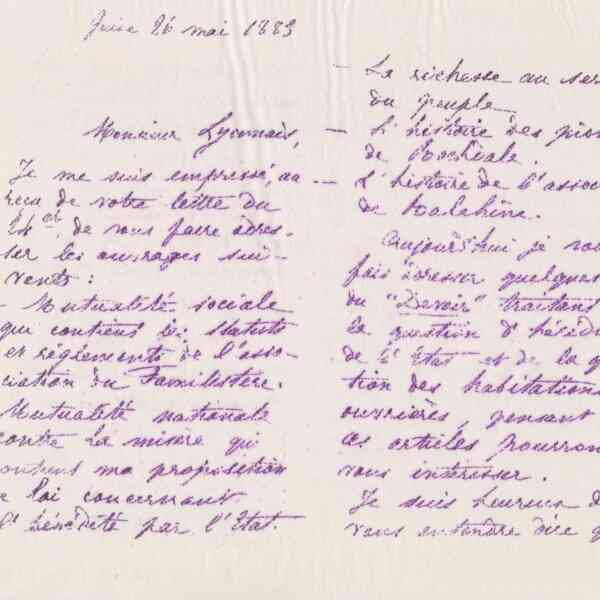 Guise 26 mai 1883
Monsieur Lyonnais,
Je me suis empressé, au
reçu de votre lettre du
24 ct, de vous faire adres-
ser les ouvrages sui-
vents :
- Mutualité sociale
qui contient les statuts
et règlements de l'asso-
ciation du Familistère.
Mutualité nationale
contre la misère qui
contient ma proposition
de loi concernant
l'hérédité par l'Etat.
- La richesse au ser
du peuple
- L'histoire des pion
de Rochdale.
- L'histoire de l'assoc
de Ralahine.
Aujourd'hui je vous
fais adresser quelques
du "Devoir" traitant
la question d'héréd
de l'Etat et de la q
tion des habitations
ouvrières, pensant
ces articles pourron
vous intéresser.
Je suis heureux d
vous entendre dire q